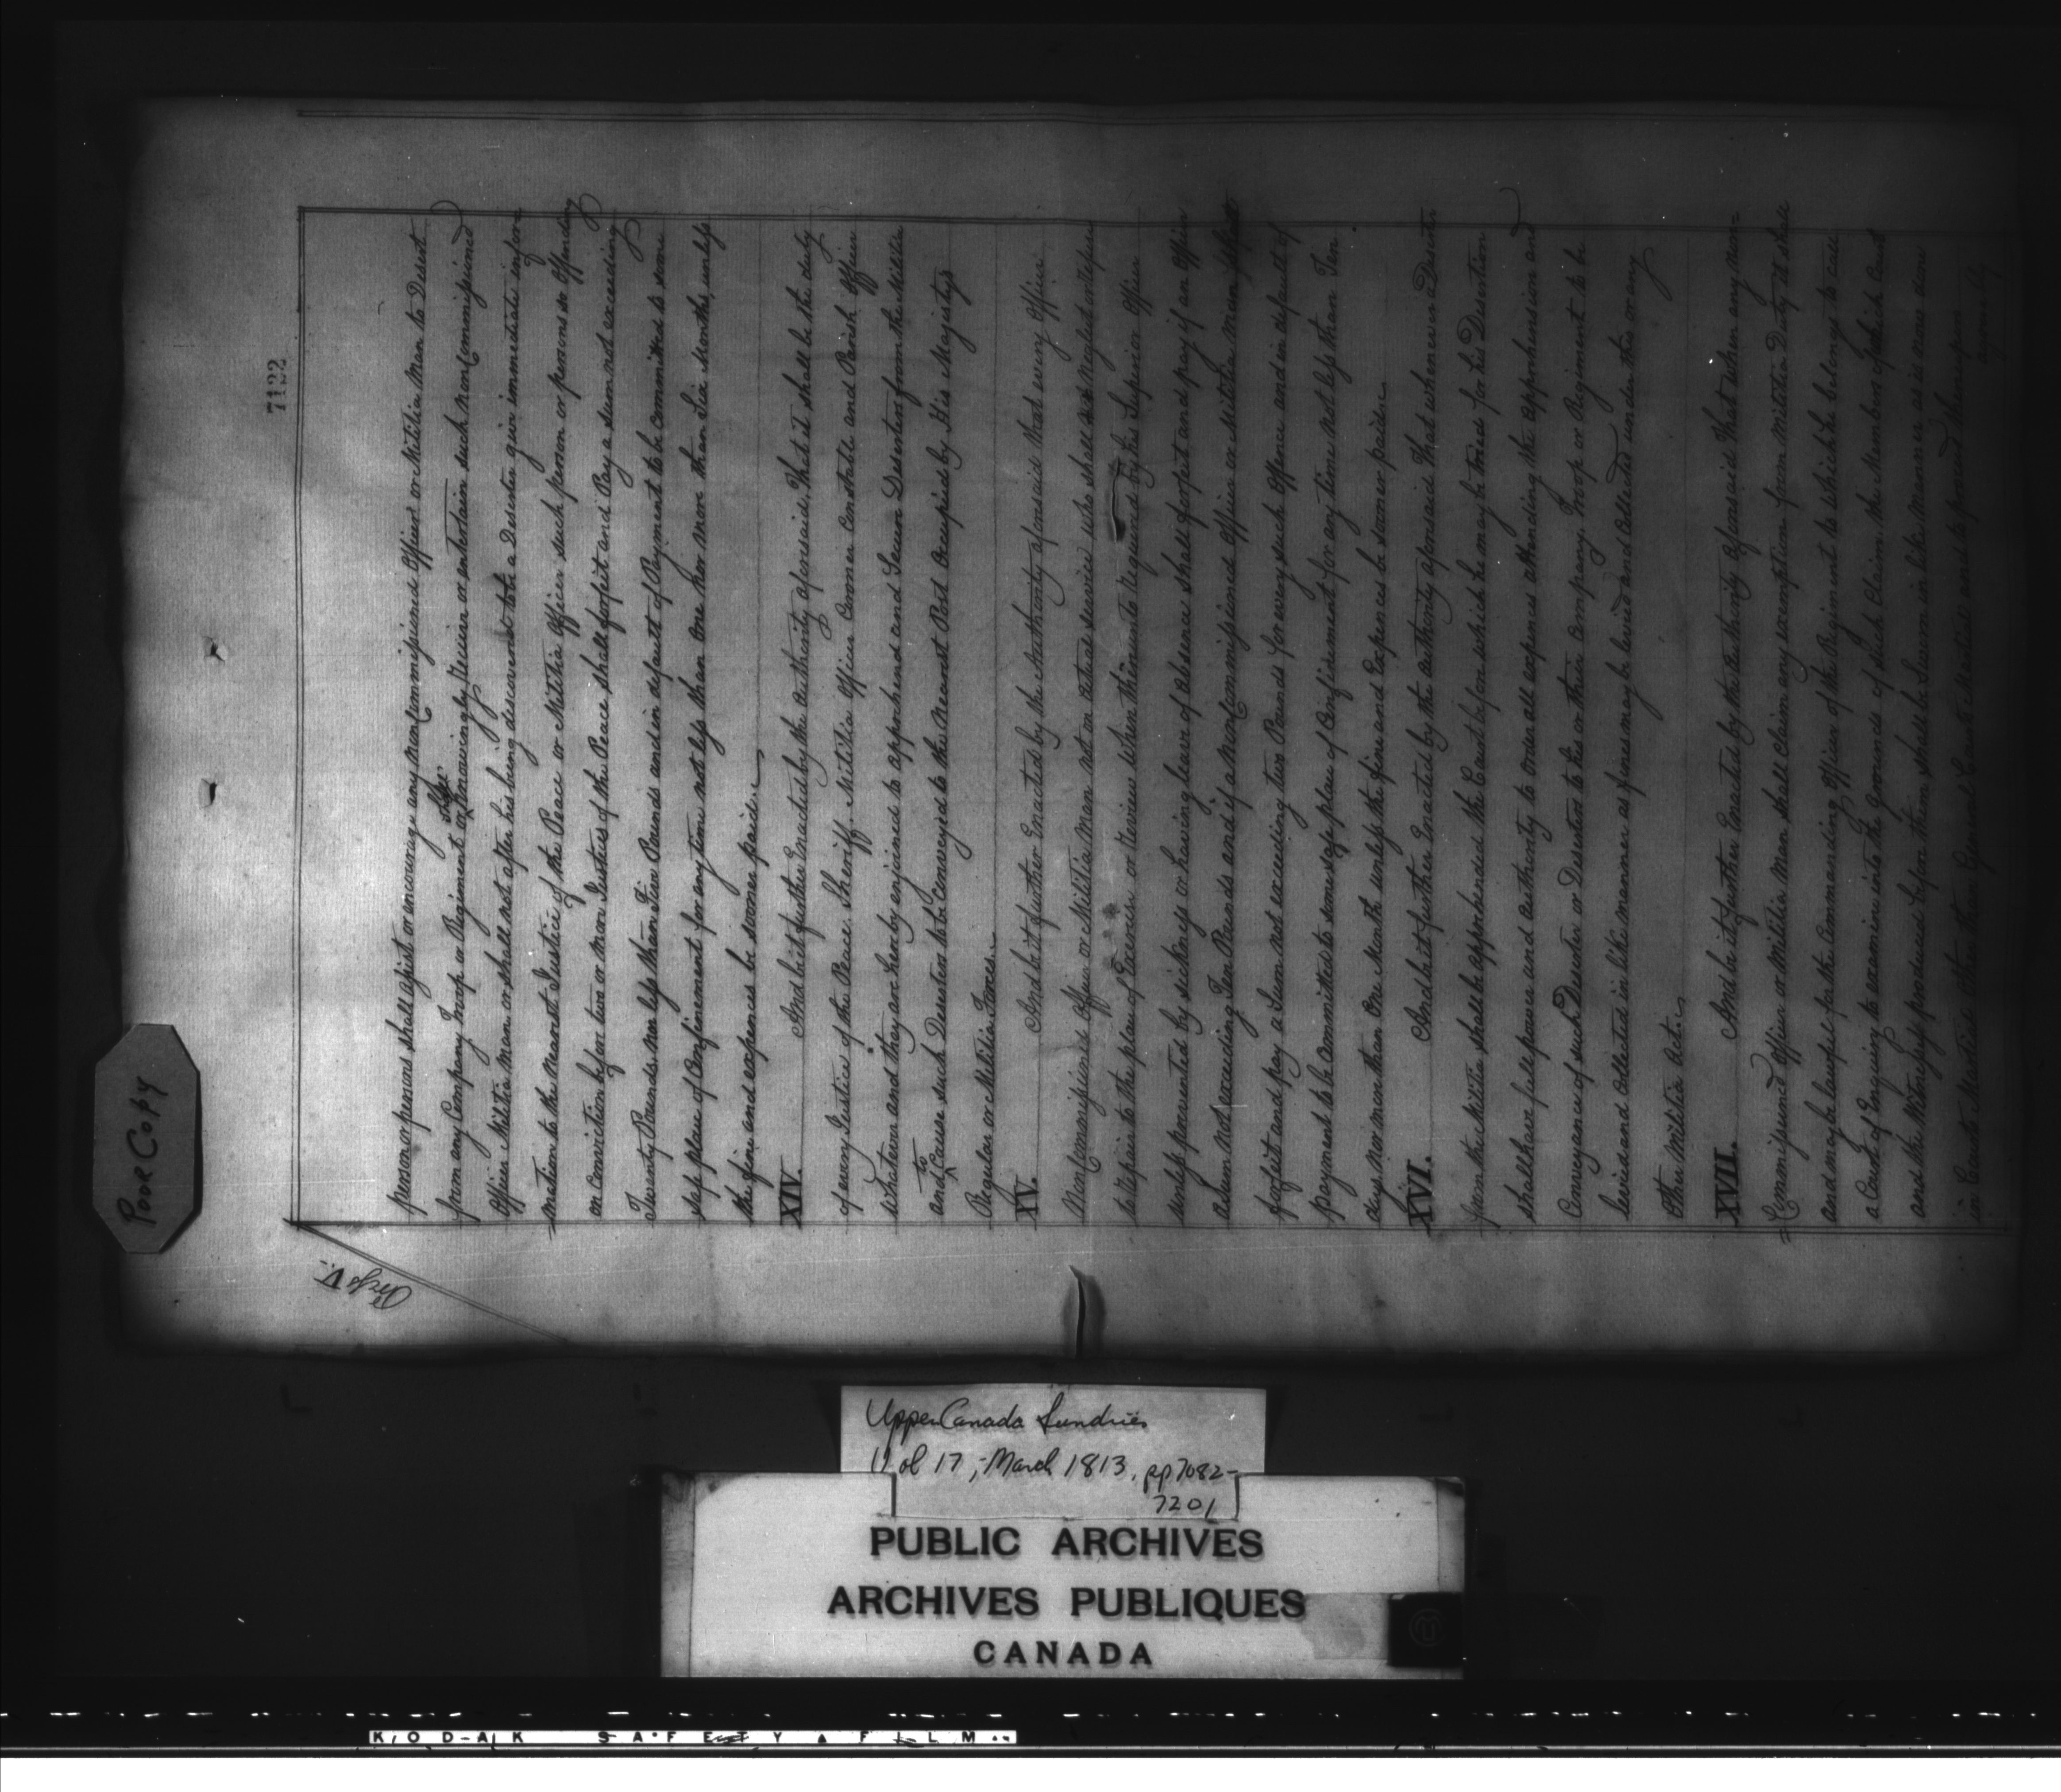 7122
Page V.
person or persons shall assist or encourage any non Commissioned Officer or Militia Man to Desert
from any Company, Troop or Regiment or shall knowingly receive or entertain such non Commissioned
Officer Militia Man or shall not after his being discovered to be a Deserter give immediate infor
mation to the nearest Justice of the Peace or Militia Officer such person or persons so offending
on conviction before two or more Justices of the Peace shall forfeit and Pay a sum not exceeding
Twenty Pounds nor less than Five Pounds and in default of Payment to be committed to some
safe place of Confinement for any time not less than One nor more than Six Months, unless
the fine and expences be sooner paid.
XIV. And be it further Enacted by the Authority aforesaid, That it shall be the duty
of every Justice of the Peace, Sheriff, Militia Officer Coroner Constable and Parish Officer
whatever and they are hereby enjoined to apprehend and Secure Deserters from the Militia
and to Cause such Deserters to be Conveyed to the nearest Post Occupied by His Majesty's
Regular or Militia Forces.
XV. And be it further Enacted by the Authority aforesaid that every Officer
Non Commissioned Officer or Militia Man not on actual service who shall neglect or refuse
to repair to the place of Exercise or Review when thereunto required by his Superior Officer
unless prevented by sickness or having leave of absence shall forfeit and pay if an Officer
a sum not exceeding Ten Pounds and if a Non Commissioned Officer or Militia Man
forfeit and pay a Sum not exceeding two Pounds for every such Offence and in default of
payment to be Committed to some safe place of Confinement for any time not less than Ten
days nor more than One Month unless the fine and Expences be sooner paid.
XVI. And be it further Enacted by the authority aforesaid That whenever a Deserter
from the Militia shall be apprehended the Court before which he may be tried for his Desertion
shall have full power and authority to order all expences attending the apprehension and
Conveyance of such Deserter or Deserters to his or their Company, Troop or Regiment to be
levied and Collected in like manner as fines may be levied and Collected under this or any
Other Militia Act.
XVII. And be it further Enacted by the Authority aforesaid That when any non=
=Commissioned Officer or Militia Man shall Claim any exemption from Militia Duty it shall
and may be lawful for the Commanding Officer of the Regiment to which he belongs to call
a Court of Enquiry to examine into the Grounds of such Claim, the Members of which Court
and the Witnesses produced before them shall be Sworn in like manner as is
in Courts Martial Other than General Courts Martial and to proceed thereupon
POOR COPY
Upper Canada Sundries
Vol 17, - March 1813, pp 7082-
7201
PUBLIC ARCHIVES
ARCHIVES PUBLIQUES
CANADA
KODAK SAFETY FILM